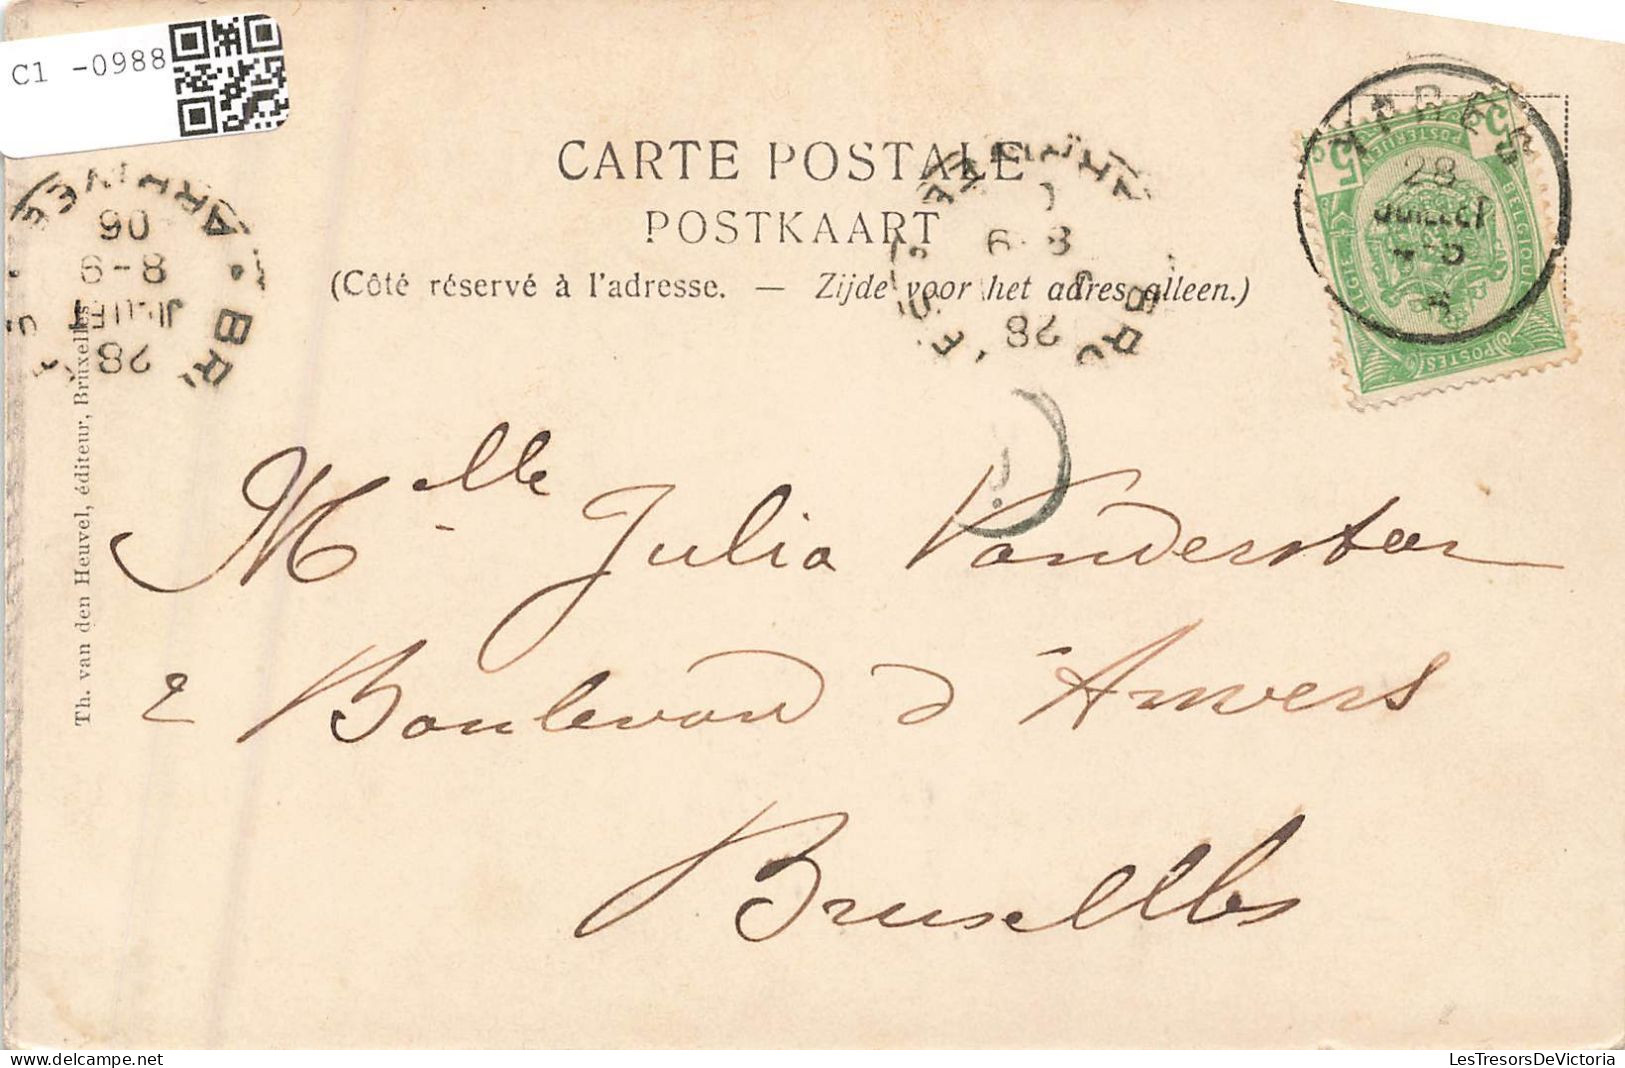 C1 -0988
CARTE POSTALE
POSTKAART
(Côté réservé à l'adresse. — Zijde voor het adres alleen.)
YPRES
28
JUILLET
5
5
BELGIQUE
POSTES
ARRIVEE
BR
06
8-9
JUILLET
28
ARRIVEE
8-9
28
Th. van den Heuvel, éditeur, Bruxelles
Mlle Julia Vandersteen
2 Boulevard d'Anvers
Bruxelles
LesTresorsDeVictoria